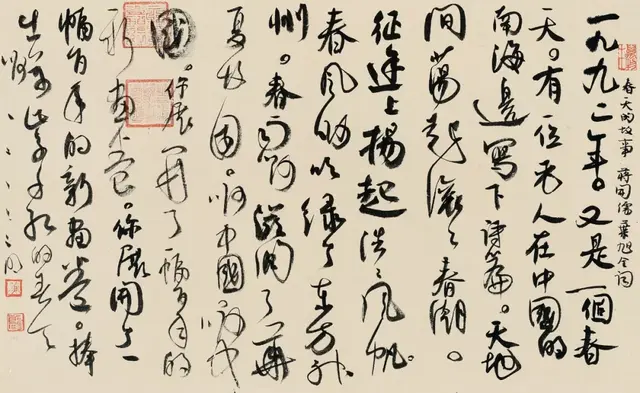 春天的故事 蔣開儒 葉旭全詞
一九九二年。又是一個春
天。有一位老人在中國的
南海邊寫下詩篇。天地
間蕩起滾々春潮。
征途上揚起浩々風帆。
春風啊吹绿了東方神
州。春雨啊滋潤了華
夏故園。啊中國啊中
國。你展開了一幅百年的
新畫卷。你展開了一
幅百年的新畫卷。捧
出萬紫千紅的春天